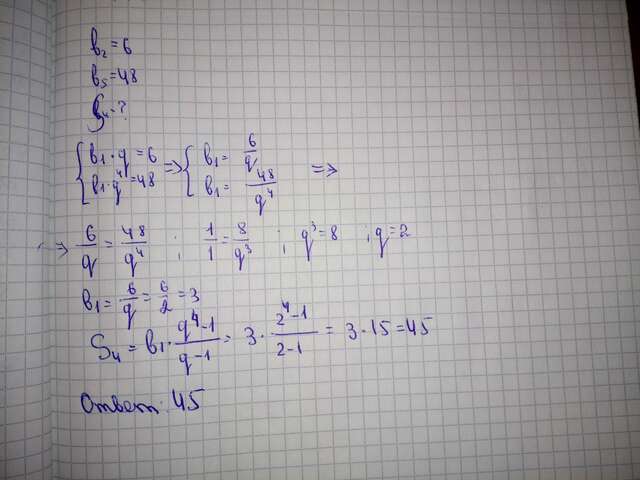 b₂=6
b₅=48
S₄-?
{b₁·q=6 b₁·q⁴=48 => {b₁=6/q b₁=48/q⁴ =>
=> 6/q = 48/q⁴ ; 1/1 = 8/q³ ; q³=8 ; q=2
b₁= 6/q = 6/2 = 3
S₄ = b₁· (q⁴-1)/(q-1) = 3· (2⁴-1)/(2-1) = 3·15=45
Ответ: 45